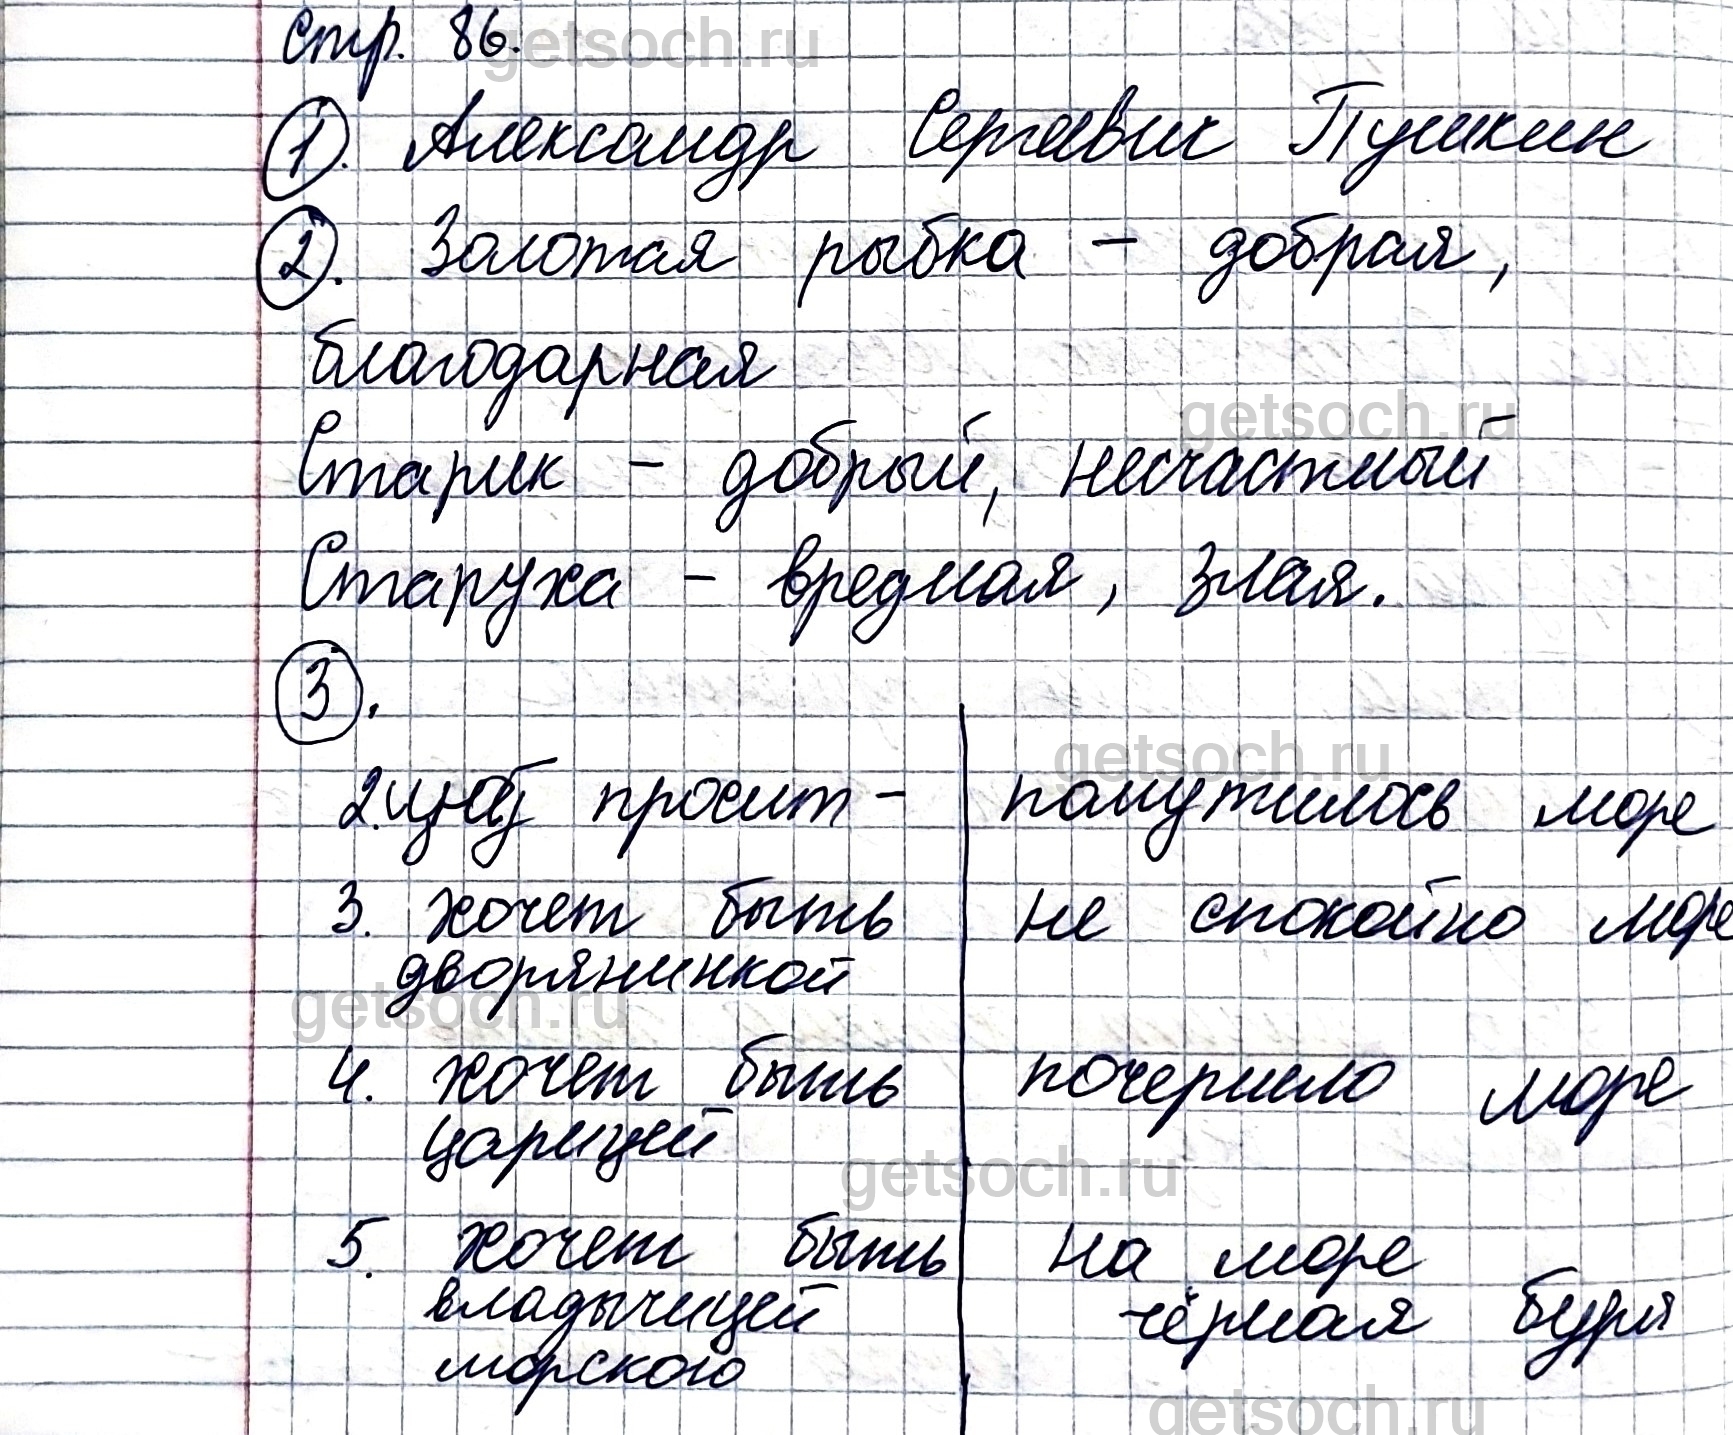 стр. 86.
1. Александр Сергеевич Пушкин
2. Золотая рыбка – добрая,
благодарная
Старик – добрый, несчастный
Старуха – вредная, злая.
3.
2. просит – помутилось море
3. хочет быть не спокойно море
дворянинкой
4. хочет быть почернело море
царицей
5. хочет быть на море
владычицей чёрная буря
морского
getsoch.ru
getsoch.ru
getsoch.ru
getsoch.ru
getsoch.ru
getsoch.ru